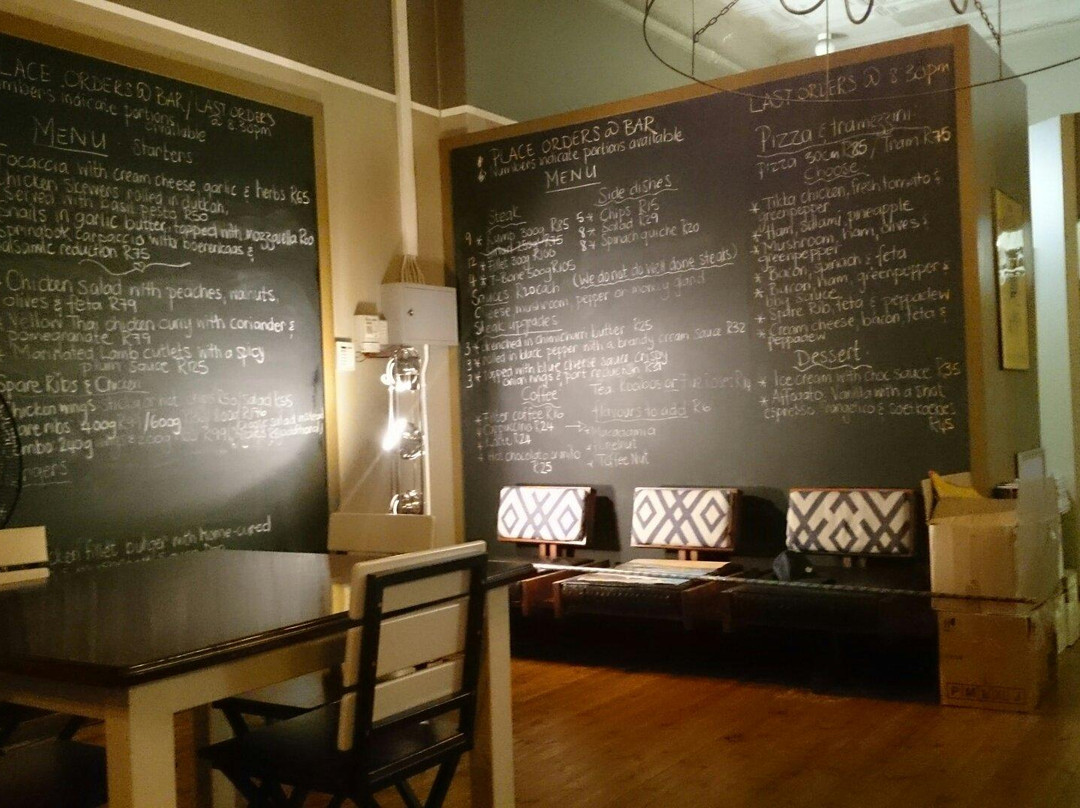 PLACE ORDERS @ BAR / LAST ORDERS
numbers indicate portions
available
@ 8:30pm
MENU
Starters
Focaccia with cream cheese, garlic & herbs R65
Chicken Skewers rolled in dukkah,
served with basil pesto R50
Snails in garlic butter, topped with mozzarella
Springbok Carpaccio with boerenkaas &
balsamic reduction R75
Chicken Salad with peaches, walnuts,
olives & feta R79
Yellow Thai chicken curry with coriander &
pomegranate R79
Marinated Lamb cutlets with a spicy
plum sauce R125
Spare Ribs & Chicken
Chicken wings
Spare ribs 400g /600g
240g
fillet burger with home-cured
PLACE ORDERS @ BAR
numbers indicate portions available
MENU
Steak
9 * Rump 300g R85
* Fillet 200g
* T-Bone 500g R105
Sauces R20 each
(We do not do well done steaks)
Cheese mushroom, pepper or monkey gland
Steak upgrades
3 * Drenched in chimichurri butter R25
3 * Rolled in black pepper with a brandy cream sauce R32
3 * Topped with blue cheese sauce, crispy
onion rings & port reduction
Coffee
* Filter coffee R16
* Cappuccino R24
* Latte R24
* Hot chocolate or milo
R25
Side dishes
5 * Chips R15
8 * Salad R29
8 * Spinach quiche R20
Tea Rooibos or five roses
flavours to add R6
* Macadamia
* Hazelnut
* Toffee Nut
LAST ORDERS @ 8:30pm
Pizza & tramezzini
Pizza 30cm R85 / Tram R75
Choose
* Tikka chicken, fresh tomato &
greenpepper
* Ham, salami, pineapple
* Mushroom, ham, olives &
greenpepper
* Bacon, spinach & feta
* Bacon, ham, greenpepper &
bbq sauce
* Spare Rib, feta & peppadew
* Cream cheese, bacon, feta &
peppadew
Dessert
* Ice cream with choc sauce R35
* Affogato, Vanilla with a shot
espresso frangelico &
R45